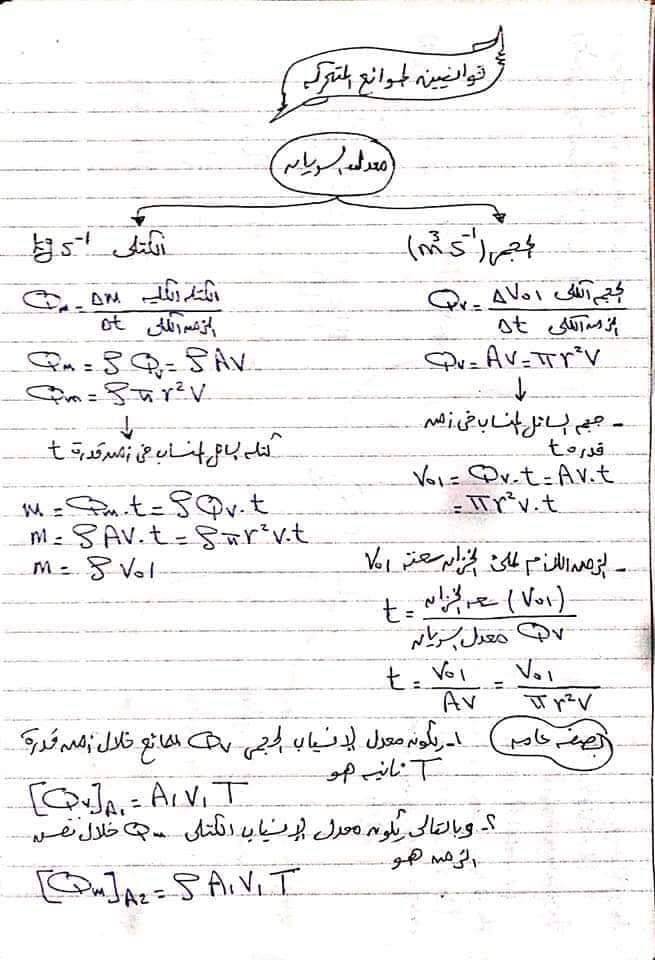 قوانين الموائع المتحركة
معدل السريان
الحجمى (m³ s⁻¹)
Qv = ΔVol الحجم الكلى / Δt الزمن الكلى
Qv = Av = πr²v
↓
- حجم السائل المنساب فى زمن
قدره t
Vol = Qv.t = Av.t
= πr²v.t
- الزمن اللازم لملئ الخزان سعته Vol
t = سعة الخزان (Vol) / معدل السريان Qv
t = Vol / Av = Vol / πr²v
الكتلى kg s⁻¹
Qm = Δm الكتلة الكلية / Δt الزمن الكلى
Qm = ρ Qv = ρ Av
Qm = ρ π r² v
↓
كتلة السائل المنساب فى زمن قدرة t
m = Qm.t = ρ Qv.t
m = ρ Av.t = ρπr²v.t
m = ρ Vol
بصفة عامة
1- يكون معدل الإنسياب الحجمى Qv المائع خلال زمن قدرة
T ثانيه هو
[Qv]A₁ = A₁ v₁ T
2- وبالتالى يكون معدل الإنسياب الكتلى Qm خلال نفس
الزمن هو
[Qm]A2 = ρ A₁ v₁ T